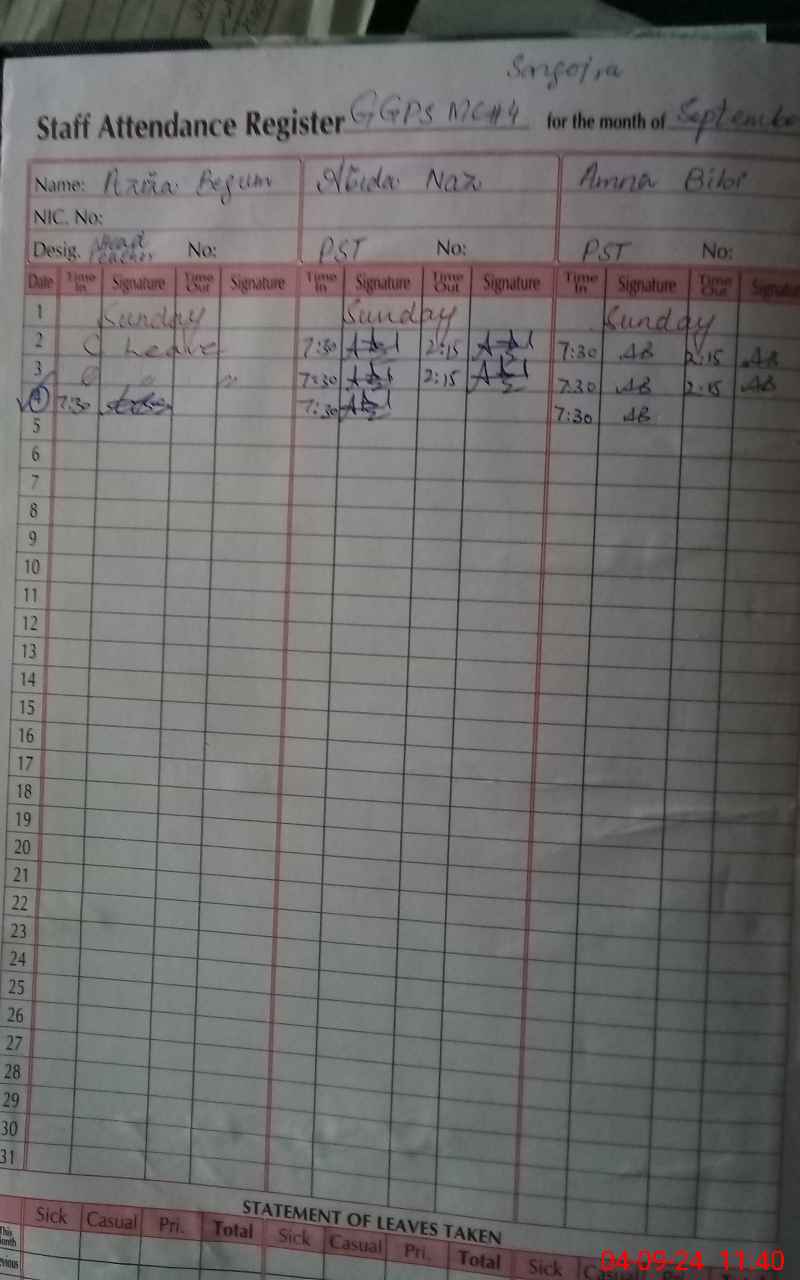 Staff Attendance Register GGPS MC#4 for the month of September
Name: Begum Abida Naz Amna Bibi
NIC. No:
Desig. Head Teacher No: PST No: PST No:
Date Time In Signature Time Out Signature Time In Signature Time Out Signature Time In Signature Time Out Signatur
1 Sunday Sunday Sunday
2 C Leave 7:30 2:15 7:30 AB 2:15 AB
3 7:30 2:15 7:30 AB 2:15 AB
4 7:30 7:30 7:30 AB
5
6
7
8
9
10
11
12
13
14
15
16
17
18
19
20
21
22
23
24
25
26
27
28
29
30
31
STATEMENT OF LEAVES TAKEN
Sick Casual Pri. Total Sick Casual Pri. Total Sick Casual
This Month
04-09-24 11:40